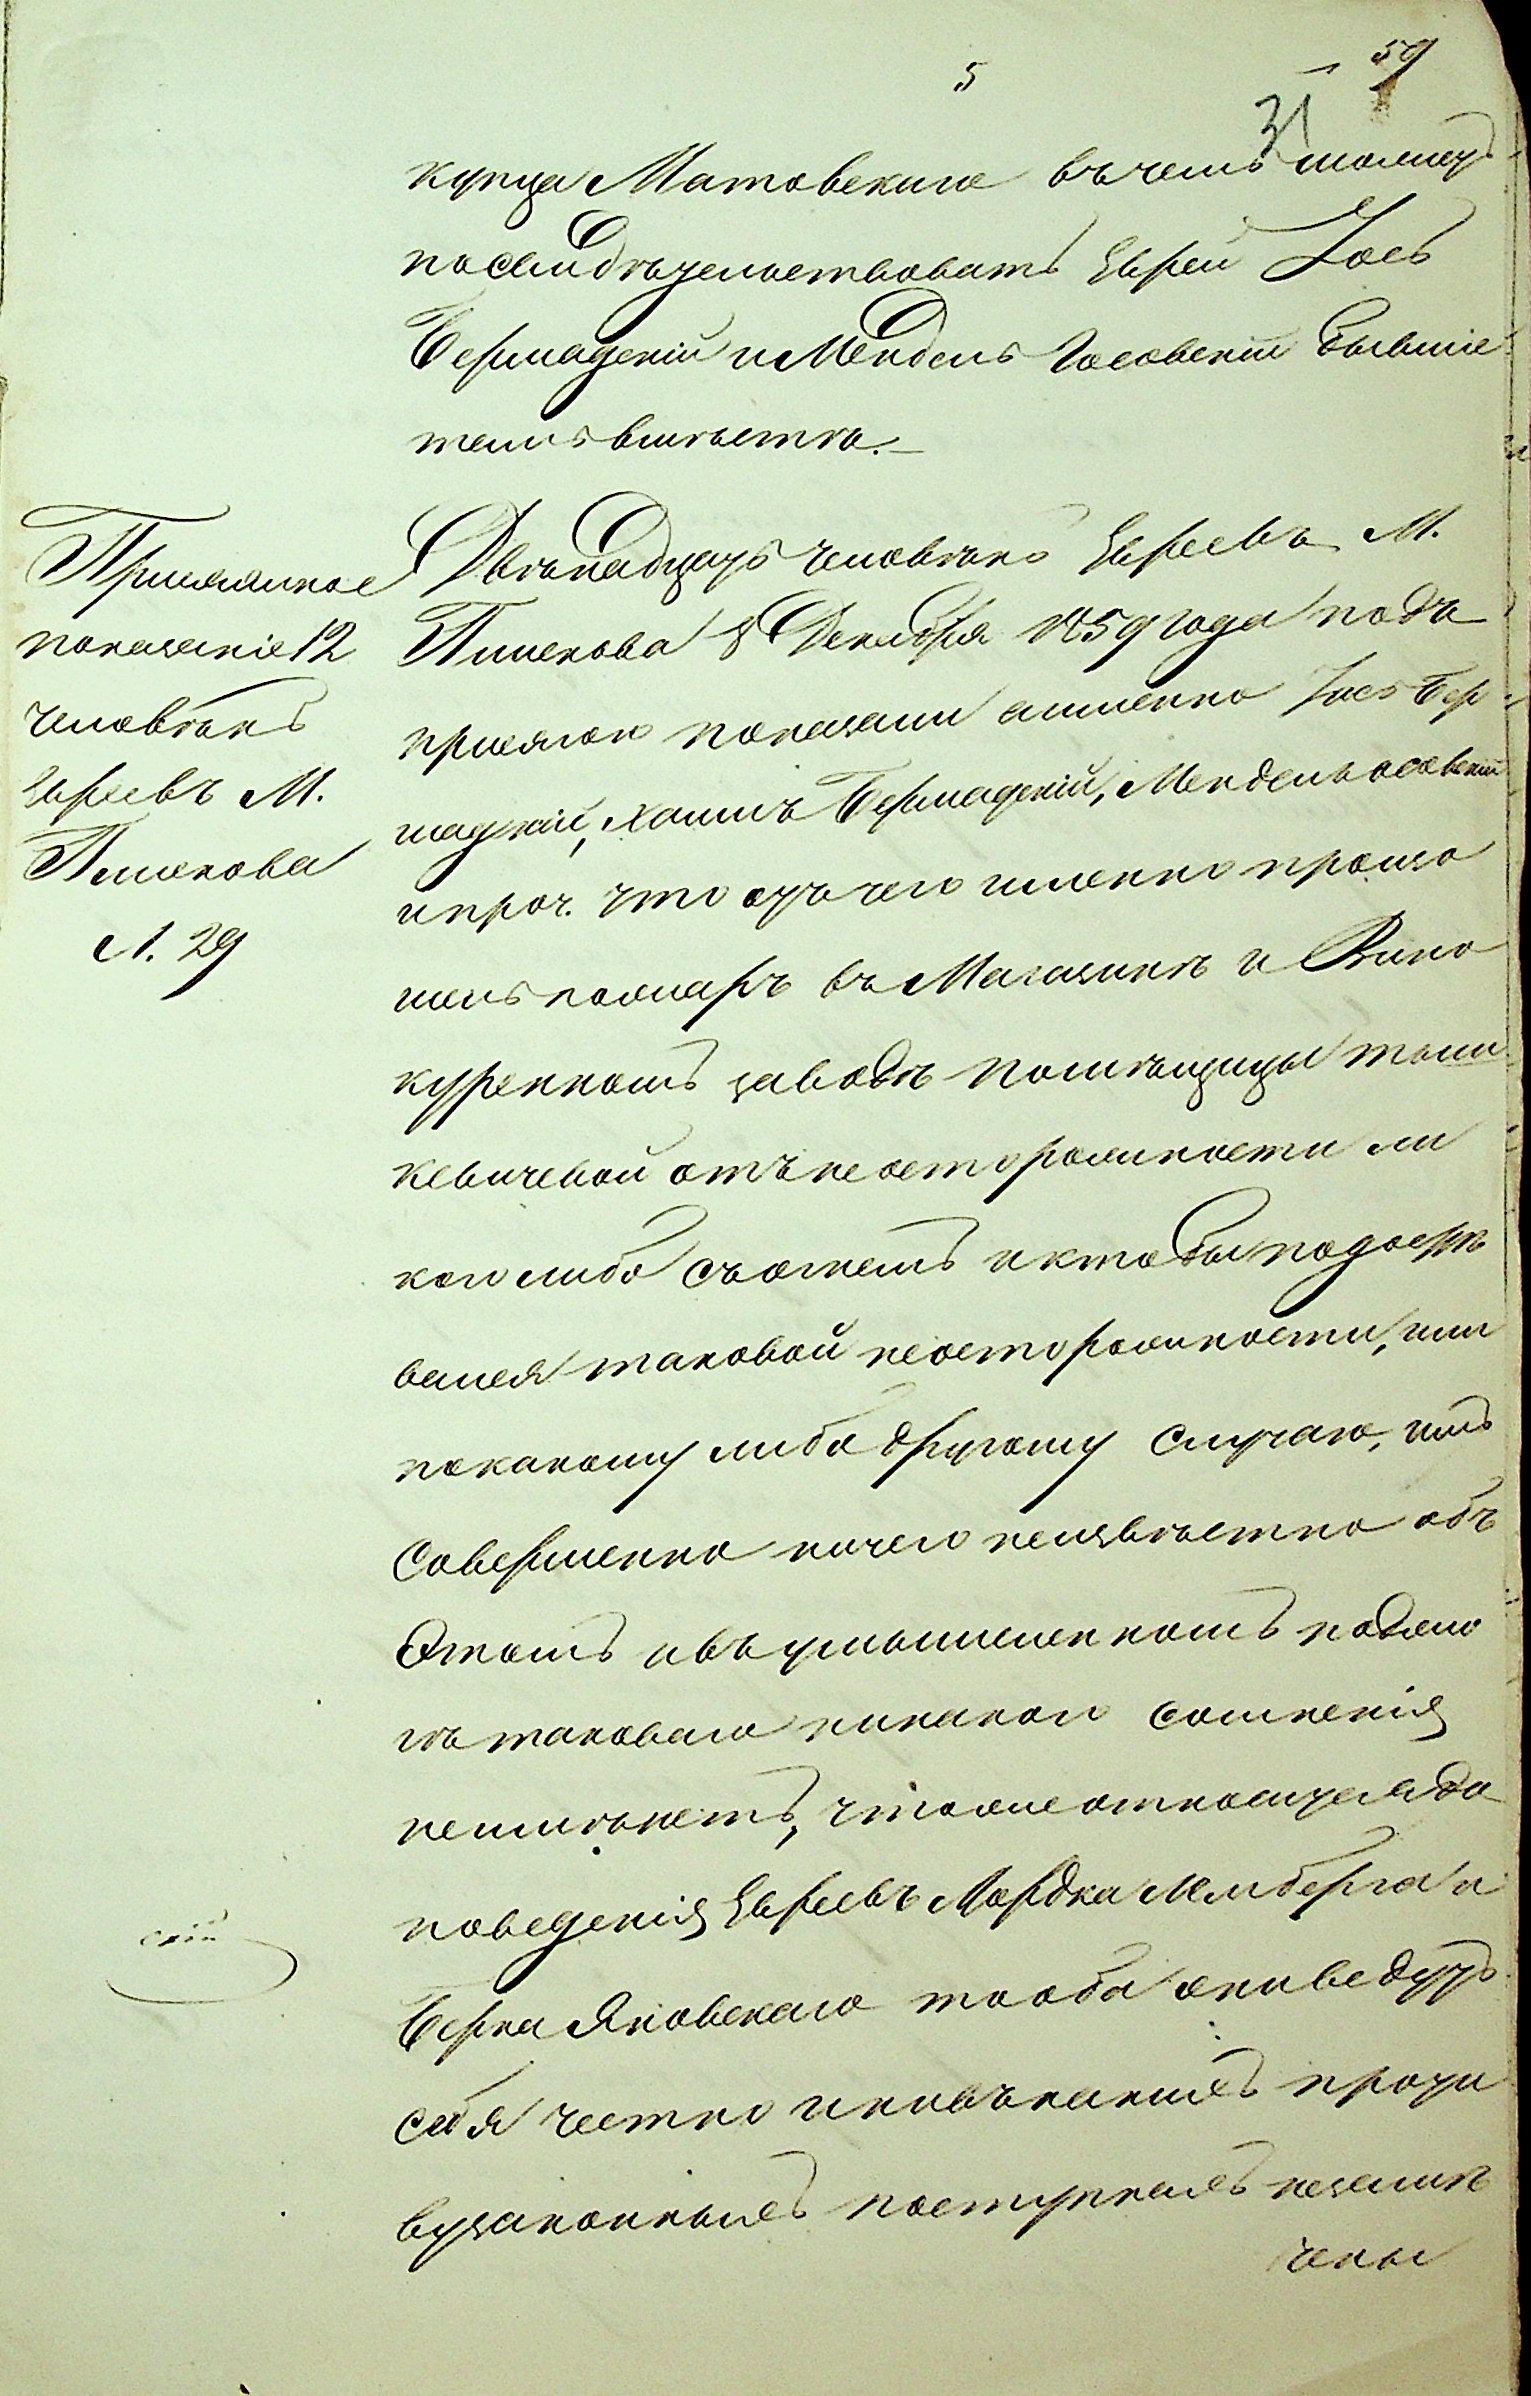 5
59
31
купца Матовскиго въ чемъ могутъ
посвидѣтельствовать Евреи Іосъ
Бершадскій и Мендель Іосовскій бывшіе
тамъ вмѣстѣ.—
Присяжное
показаніе 12
человѣкъ
Евреевъ М.
Пикова
Л. 29
Двѣнадцать человѣкъ Евреевъ М.
Пикова 8 Декабря 1859 года подъ
присягою показали а именно Іосъ Бер-
шадскій, Хаимъ Бершадскій, Мендель Іосовскій
и проч. что отъ чего именно произо
шелъ пожаръ въ Магазинѣ и Вино
куренномъ заводѣ помѣщицы
кевичевой отъ неосторожности ли
кого либо съ огнемъ и кто бы подвер
вшися таковой неосторожности, или
по какому либо другому случаю, имъ
совершенно ничего неизвѣстно объ
этомъ и въ умышленномъ поджо
гѣ таковаго никакого сомнѣнія
не имѣютъ, что же относится до
поведенія Евреевъ Мордка Лемберга и
Берка Яновскаго то оба они ведутъ
скій
себя честно и ни въ какихъ проти
вузаконныхъ поступкахъ незамѣ
чены